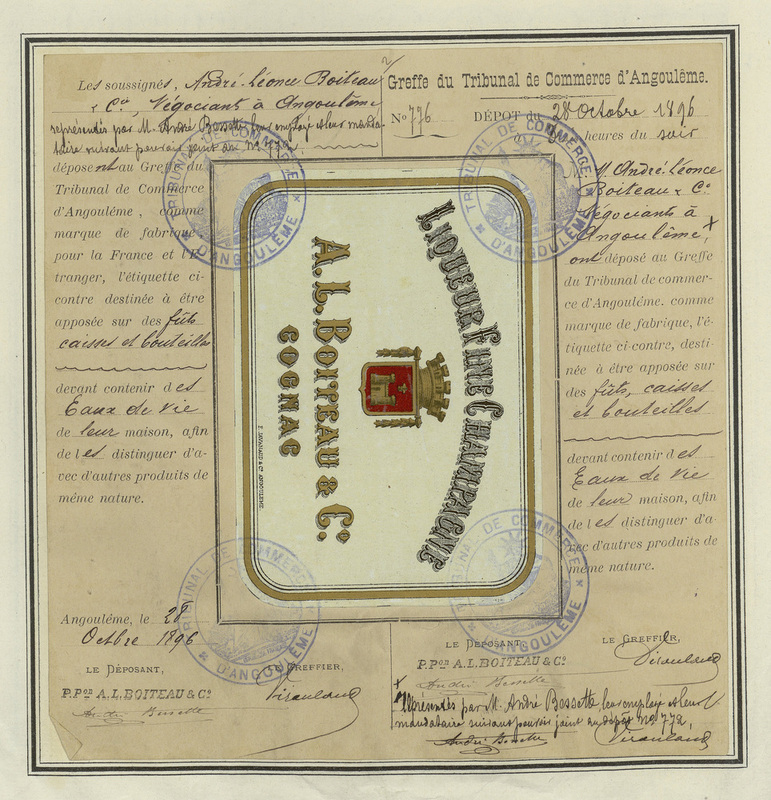 Les soussignés, André-Léonce Boiteau
& Cie, Négociants à Angoulême
représentés par M. André Bessette leur employé et leur manda-
taire suivant pouvoir joint au nº 772
déposent au Greffe du
Tribunal de Commerce
d'Angoulême, comme
marque de fabrique
pour la France et l'E-
tranger, l'étiquette ci-
contre destinée à être
apposée sur des fûts
caisses et bouteilles
devant contenir des
Eaux de Vie
de leur maison, afin
de les distinguer d'a-
vec d'autres produits de
même nature.
Angoulême, le 28
Octbre 1896
LE DÉPOSANT,
LE GREFFIER,
P.Pon A.L.BOITEAU & Co
André Bessette
Greffe du Tribunal de Commerce d'Angoulême.
No 776
DÉPOT du 28 Octobre 1896
heures du soir
M. M. André-Léonce
Boiteau & Co
Négociants à
Angoulême, x
ont déposé au Greffe
du Tribunal de commer-
ce d'Angoulême. comme
marque de fabrique, l'é-
tiquette ci-contre, desti-
née à être apposée sur
des fûts, caisses
et bouteilles
devant contenir des
Eaux de Vie
de leur maison, afin
de les distinguer d'a-
vec d'autres produits de
même nature.
LE DÉPOSANT,
LE GREFFIER,
P.Pon A.L.BOITEAU & Co
André Bessette
x représentés par M. André Bessette, leur employé et leur
mandataire suivant pouvoir joint au dépôt no 772,
André Bessette
LIQUEUR FINE CHAMPAGNE
A.L. BOITEAU & Co.
COGNAC
TRIBUNAL DE COMMERCE
D'ANGOULÊME
TRIBUNAL DE COMMERCE
D'ANGOULÊME
TRIBUNAL DE COMMERCE
D'ANGOULÊME
TRIBUNAL DE COMMERCE
D'ANGOULÊME